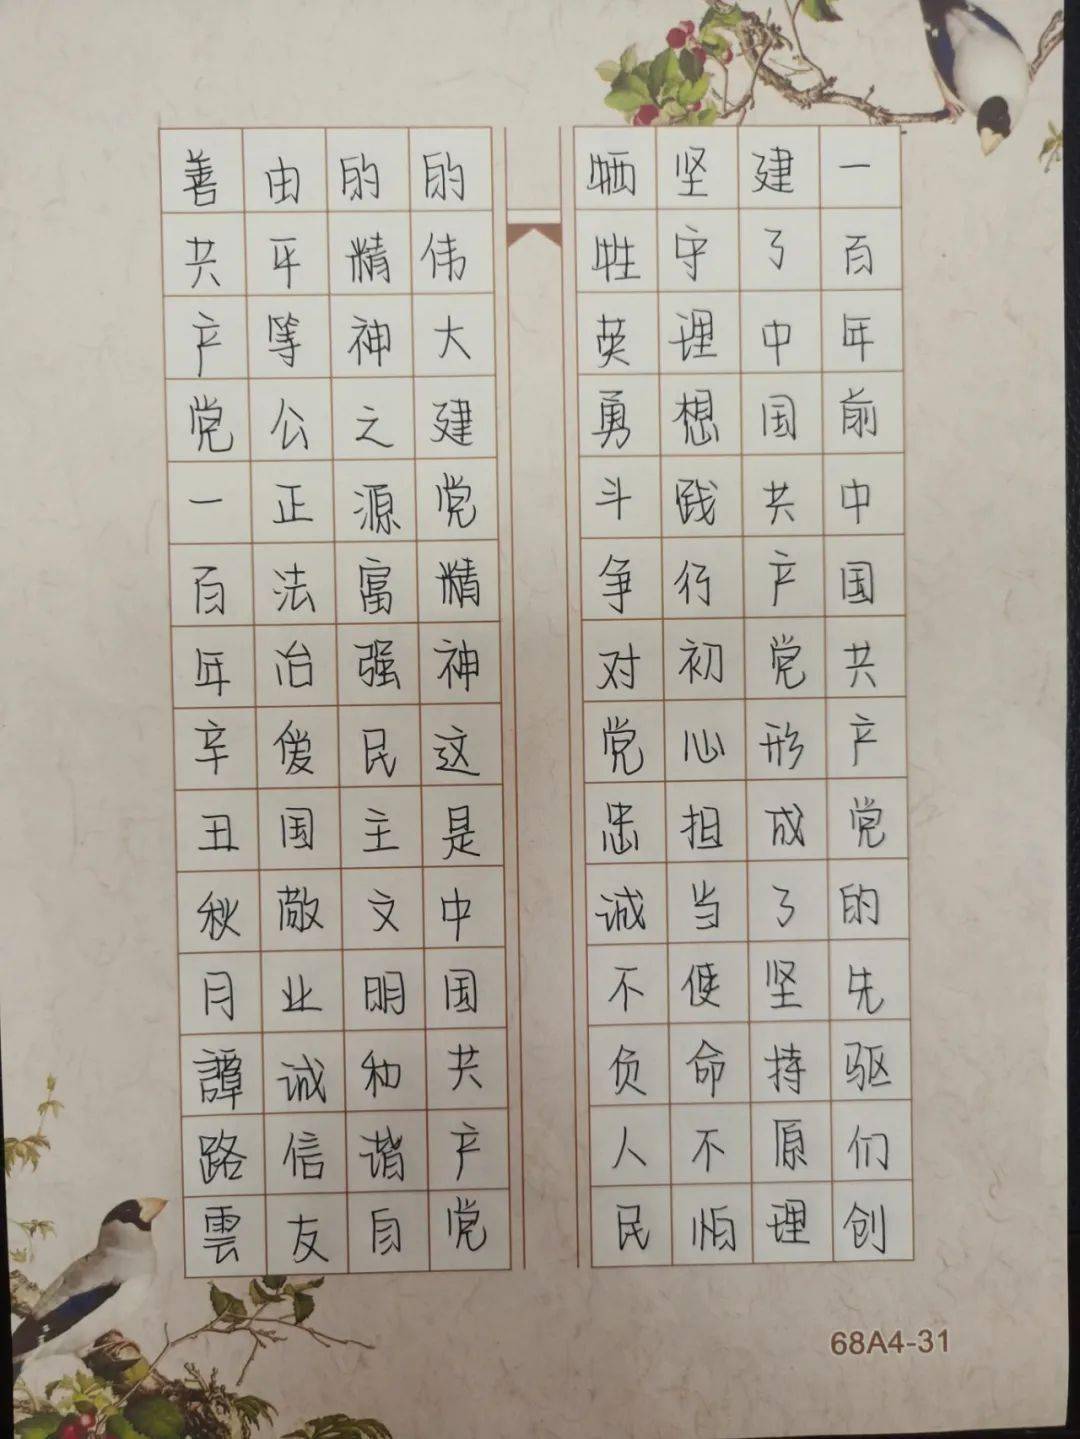 一百年前中国共产党的先驱们创
建了中国共产党形成了坚持原理
坚守理想践行初心担当使命不怕
牺牲英勇斗争对党忠诚不负人民
的伟大建党精神这是中国共产党
的精神之源富强民主文明和谐自
由平等公正法治爱国敬业诚信友
善共产党一百年辛丑秋月譚路雲
68A4-31